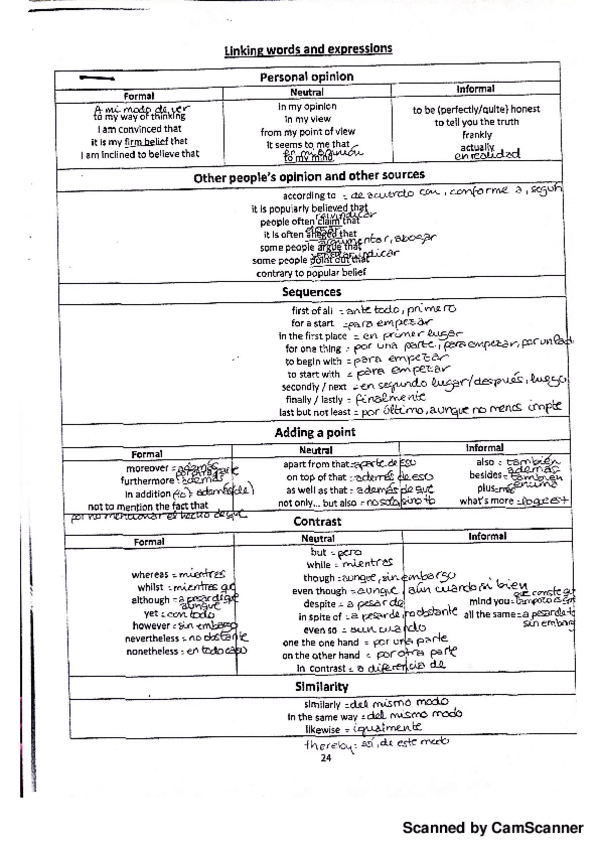 Linking words and expressions
Personal opinion
Formal Neutral Informal
A mi modo de ver
to my way of thinking
I am convinced that
it is my firm belief that
I am inclined to believe that
in my opinion
in my view
from my point of view
it seems to me that
en mi opinión
to my mind
to be (perfectly/quite) honest
to tell you the truth
frankly
actually
en realidad
Other people's opinion and other sources
according to = de acuerdo con, conforme a, según
it is popularly believed that
reivindicar
people often claim that
alegar
it is often alleged that
argumentar, abogar
some people argue that
some people point out that
contrary to popular belief
Sequences
first of all = ante todo, primero
for a start = para empezar
in the first place = en primer lugar
for one thing = por una parte, para empezar, por un lado
to begin with = para empezar
to start with = para empezar
secondly / next = en segundo lugar/después, luego
finally / lastly = finalmente
last but not least = por último, aunque no menos impte
Adding a point
Formal Neutral Informal
moreover = además
por otra parte
furthermore = además
in addition (to) = además (de)
not to mention the fact that
por no mencionar el hecho de que
apart from that = aparte de eso
on top of that = además de eso
as well as that = además de que
not only... but also = no solo sino tb
also = también
además
besides = también
encima
plus = más
what's more =
Contrast
Formal Neutral Informal
whereas = mientras
whilst = mientras que
although = a pesar de que
aunque
yet = con todo
however = sin embargo
nevertheless = no obstante
nonetheless = en todo caso
but = pero
while = mientras
though = aunque, sin embargo
even though = aunque, aún cuando, si bien
despite = a pesar de
in spite of = a pesar de, no obstante
even so = aun cuando
one the one hand = por una parte
on the other hand = por otra parte
in contrast = a diferencia de
que conste que
mind you =
all the same = a pesar de t
sin embarg
Similarity
similarly = del mismo modo
in the same way = del mismo modo
likewise = igualmente
thereby = así, de este modo
24
Scanned by CamScanner